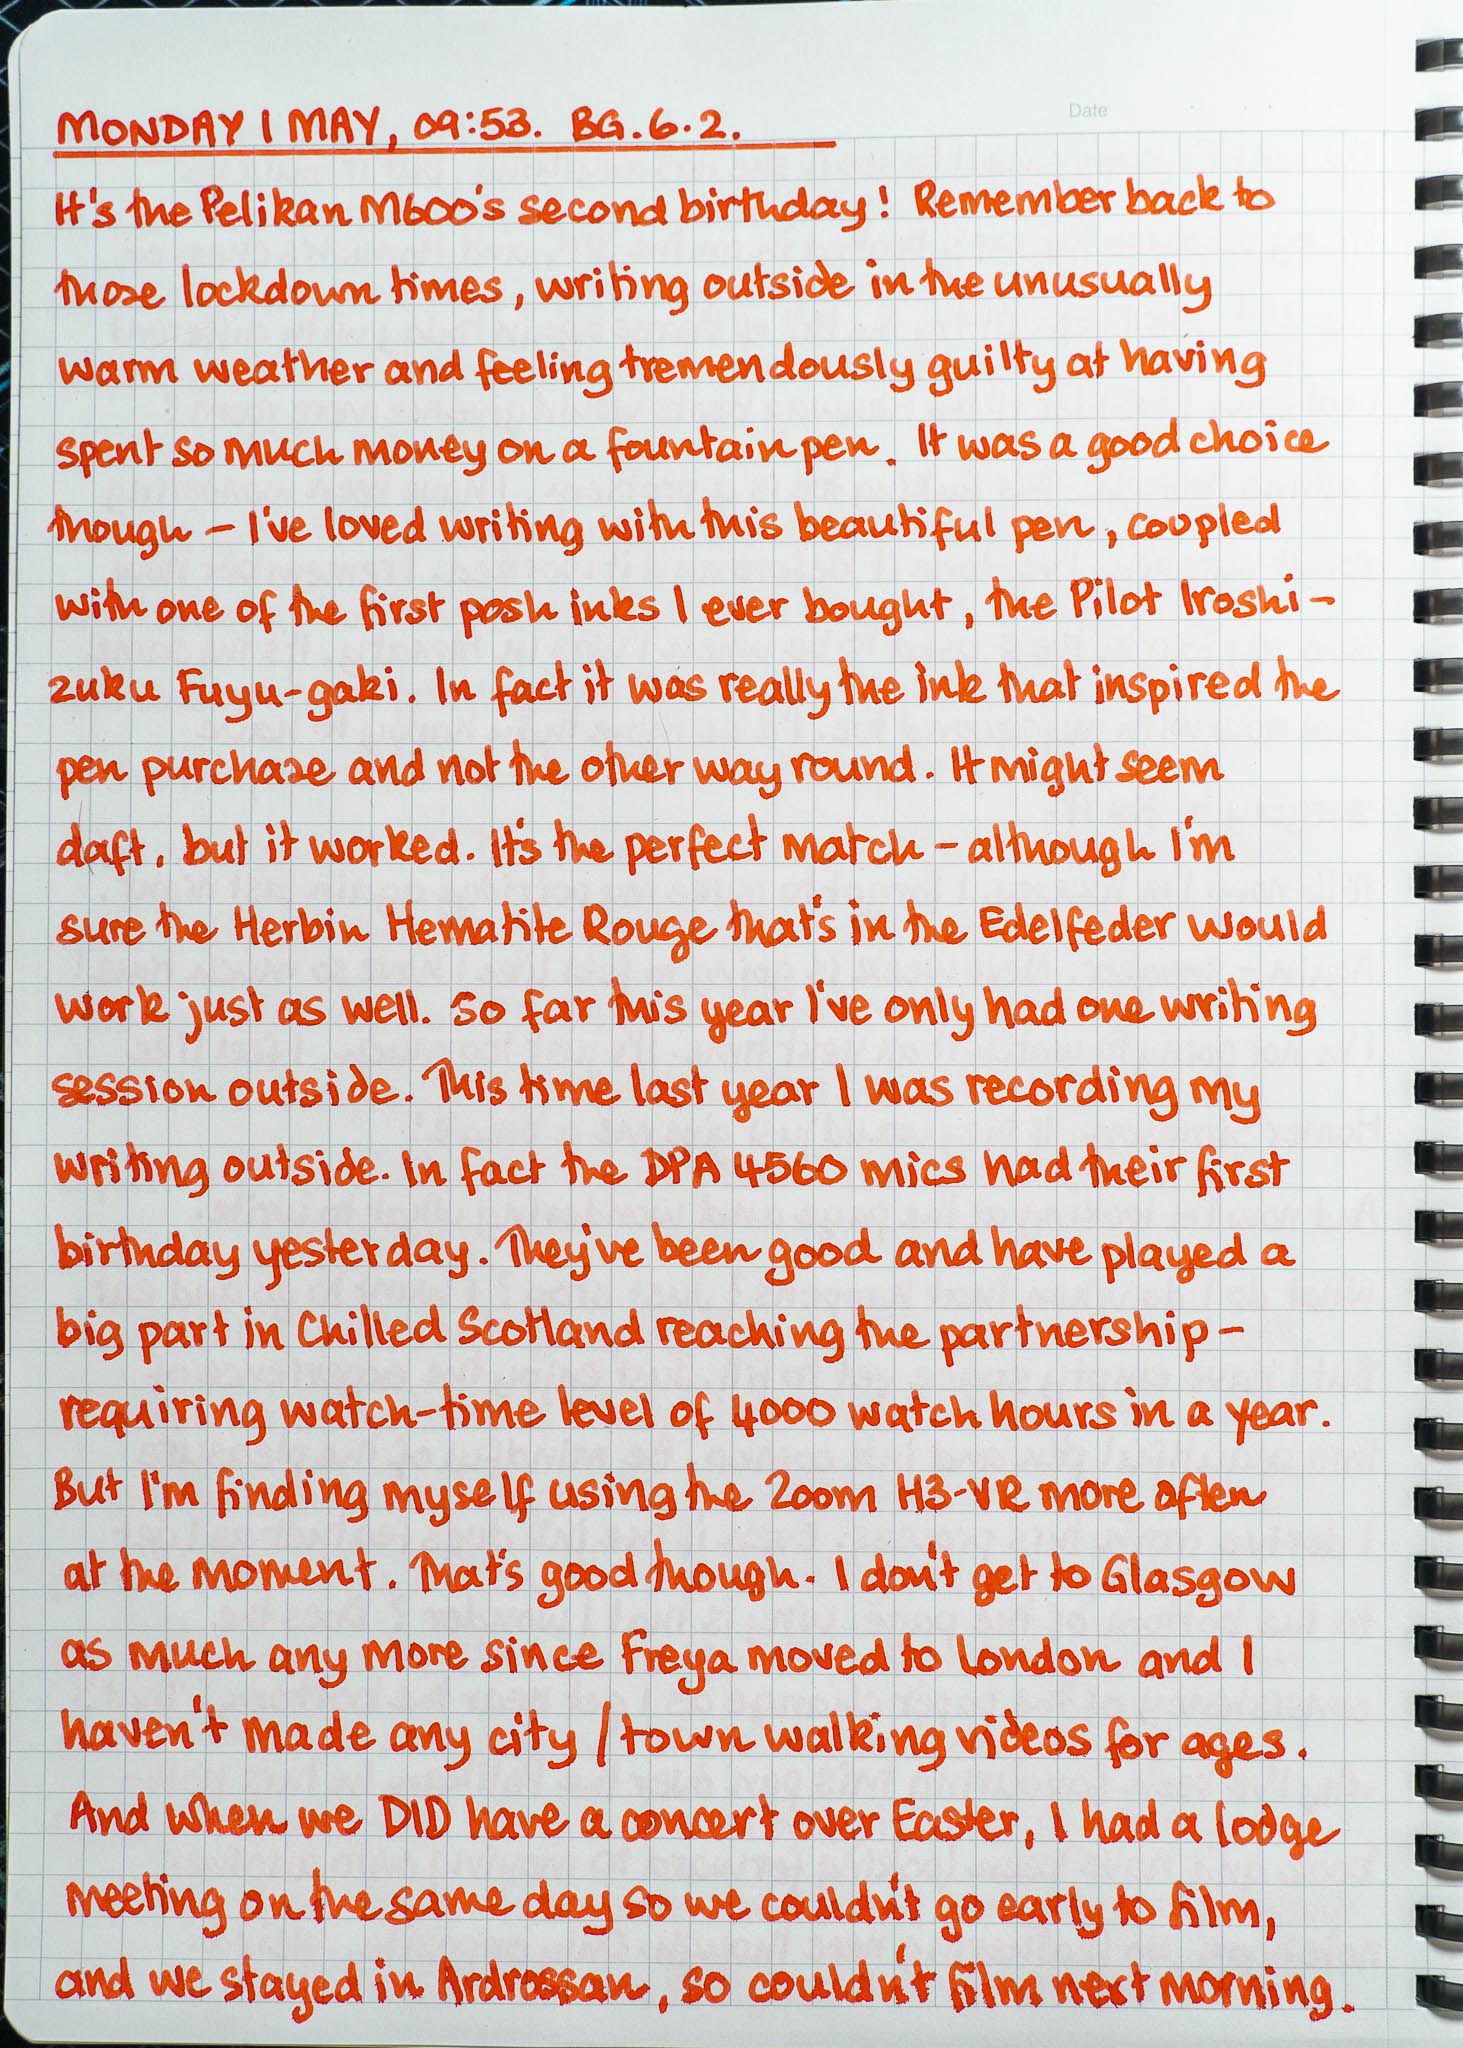 Date
MONDAY 1 MAY, 09:53. BG.6.2.
It's the Pelikan M600's second birthday! Remember back to
those lockdown times, writing outside in the unusually
warm weather and feeling tremendously guilty at having
spent so much money on a fountain pen. It was a good choice
though – I've loved writing with this beautiful pen, coupled
with one of the first posh inks I ever bought, the Pilot Iroshi-
zuku Fuyu-gaki. In fact it was really the ink that inspired the
pen purchase and not the other way round. It might seem
daft, but it worked. It's the perfect match – although I'm
sure the Herbin Hematite Rouge that's in the Edelfeder would
work just as well. So far this year I've only had one writing
session outside. This time last year I was recording my
writing outside. In fact the DPA 4560 mics had their first
birthday yesterday. They've been good and have played a
big part in Chilled Scotland reaching the partnership –
requiring watch-time level of 4000 watch hours in a year.
But I'm finding myself using the Zoom H3-VR more often
at the moment. That's good though. I don't get to Glasgow
as much any more since Freya moved to London and I
haven't made any city/town walking videos for ages.
And when we DID have a concert over Easter, I had a lodge
meeting on the same day so we couldn't go early to film,
and we stayed in Ardrossan, so couldn't film next morning.